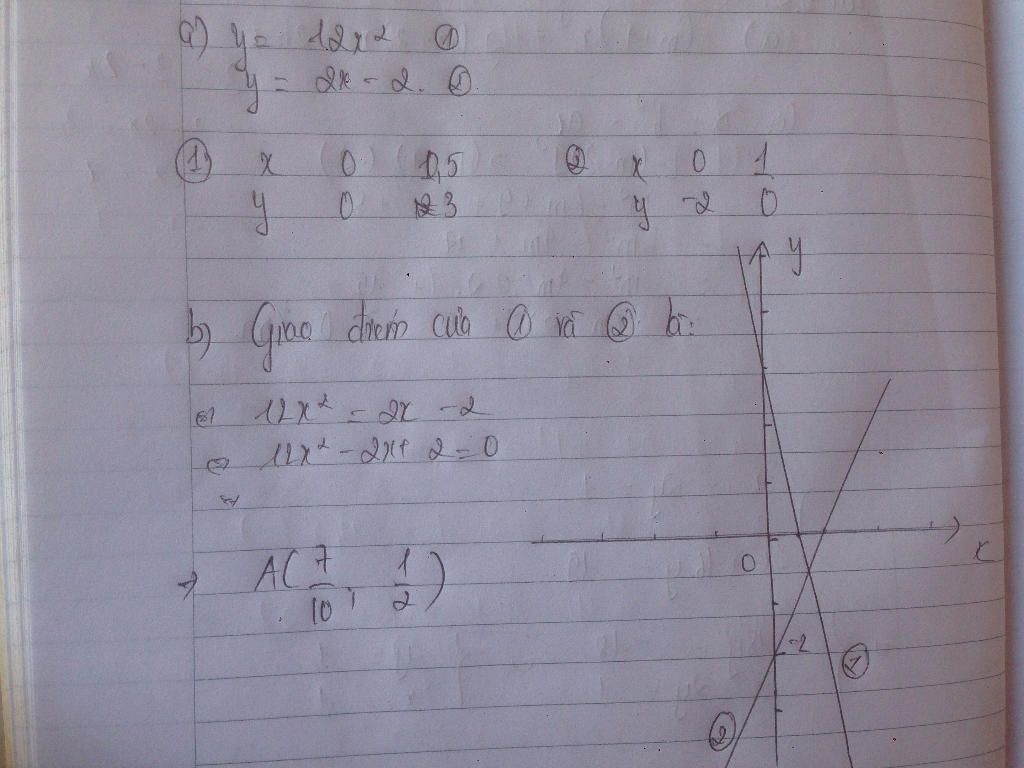 a) y = 12x² ①
y = 2x - 2. ②
① x 0 1,5 ② x 0 1
y 0 3 y -2 0
y
b) Giao điểm của ① và ② là:
⇔ 12x² = 2x - 2
⇔ 12x² - 2x + 2 = 0
⇔
0 x
⇒ A(7/10; 1/2)
-2
①
②